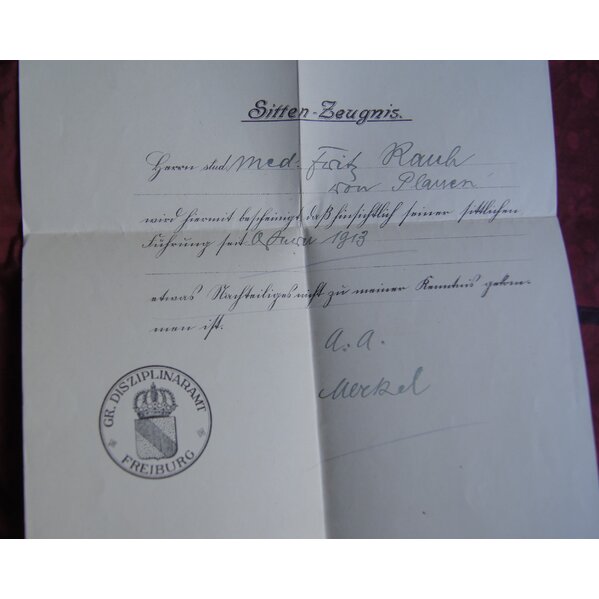 Sitten-Zeugnis.
Herrn stud. med. Fritz Rauh
von Plauen
wird hiermit bescheinigt, daß hinsichtlich seiner sittlichen
Führung seit Ostern 1913
etwas Nachteiliges nicht zu meiner Kenntnis gekom-
men ist.
A. A.
Merkel
GR. DISZIPLINARAMT
FREIBURG